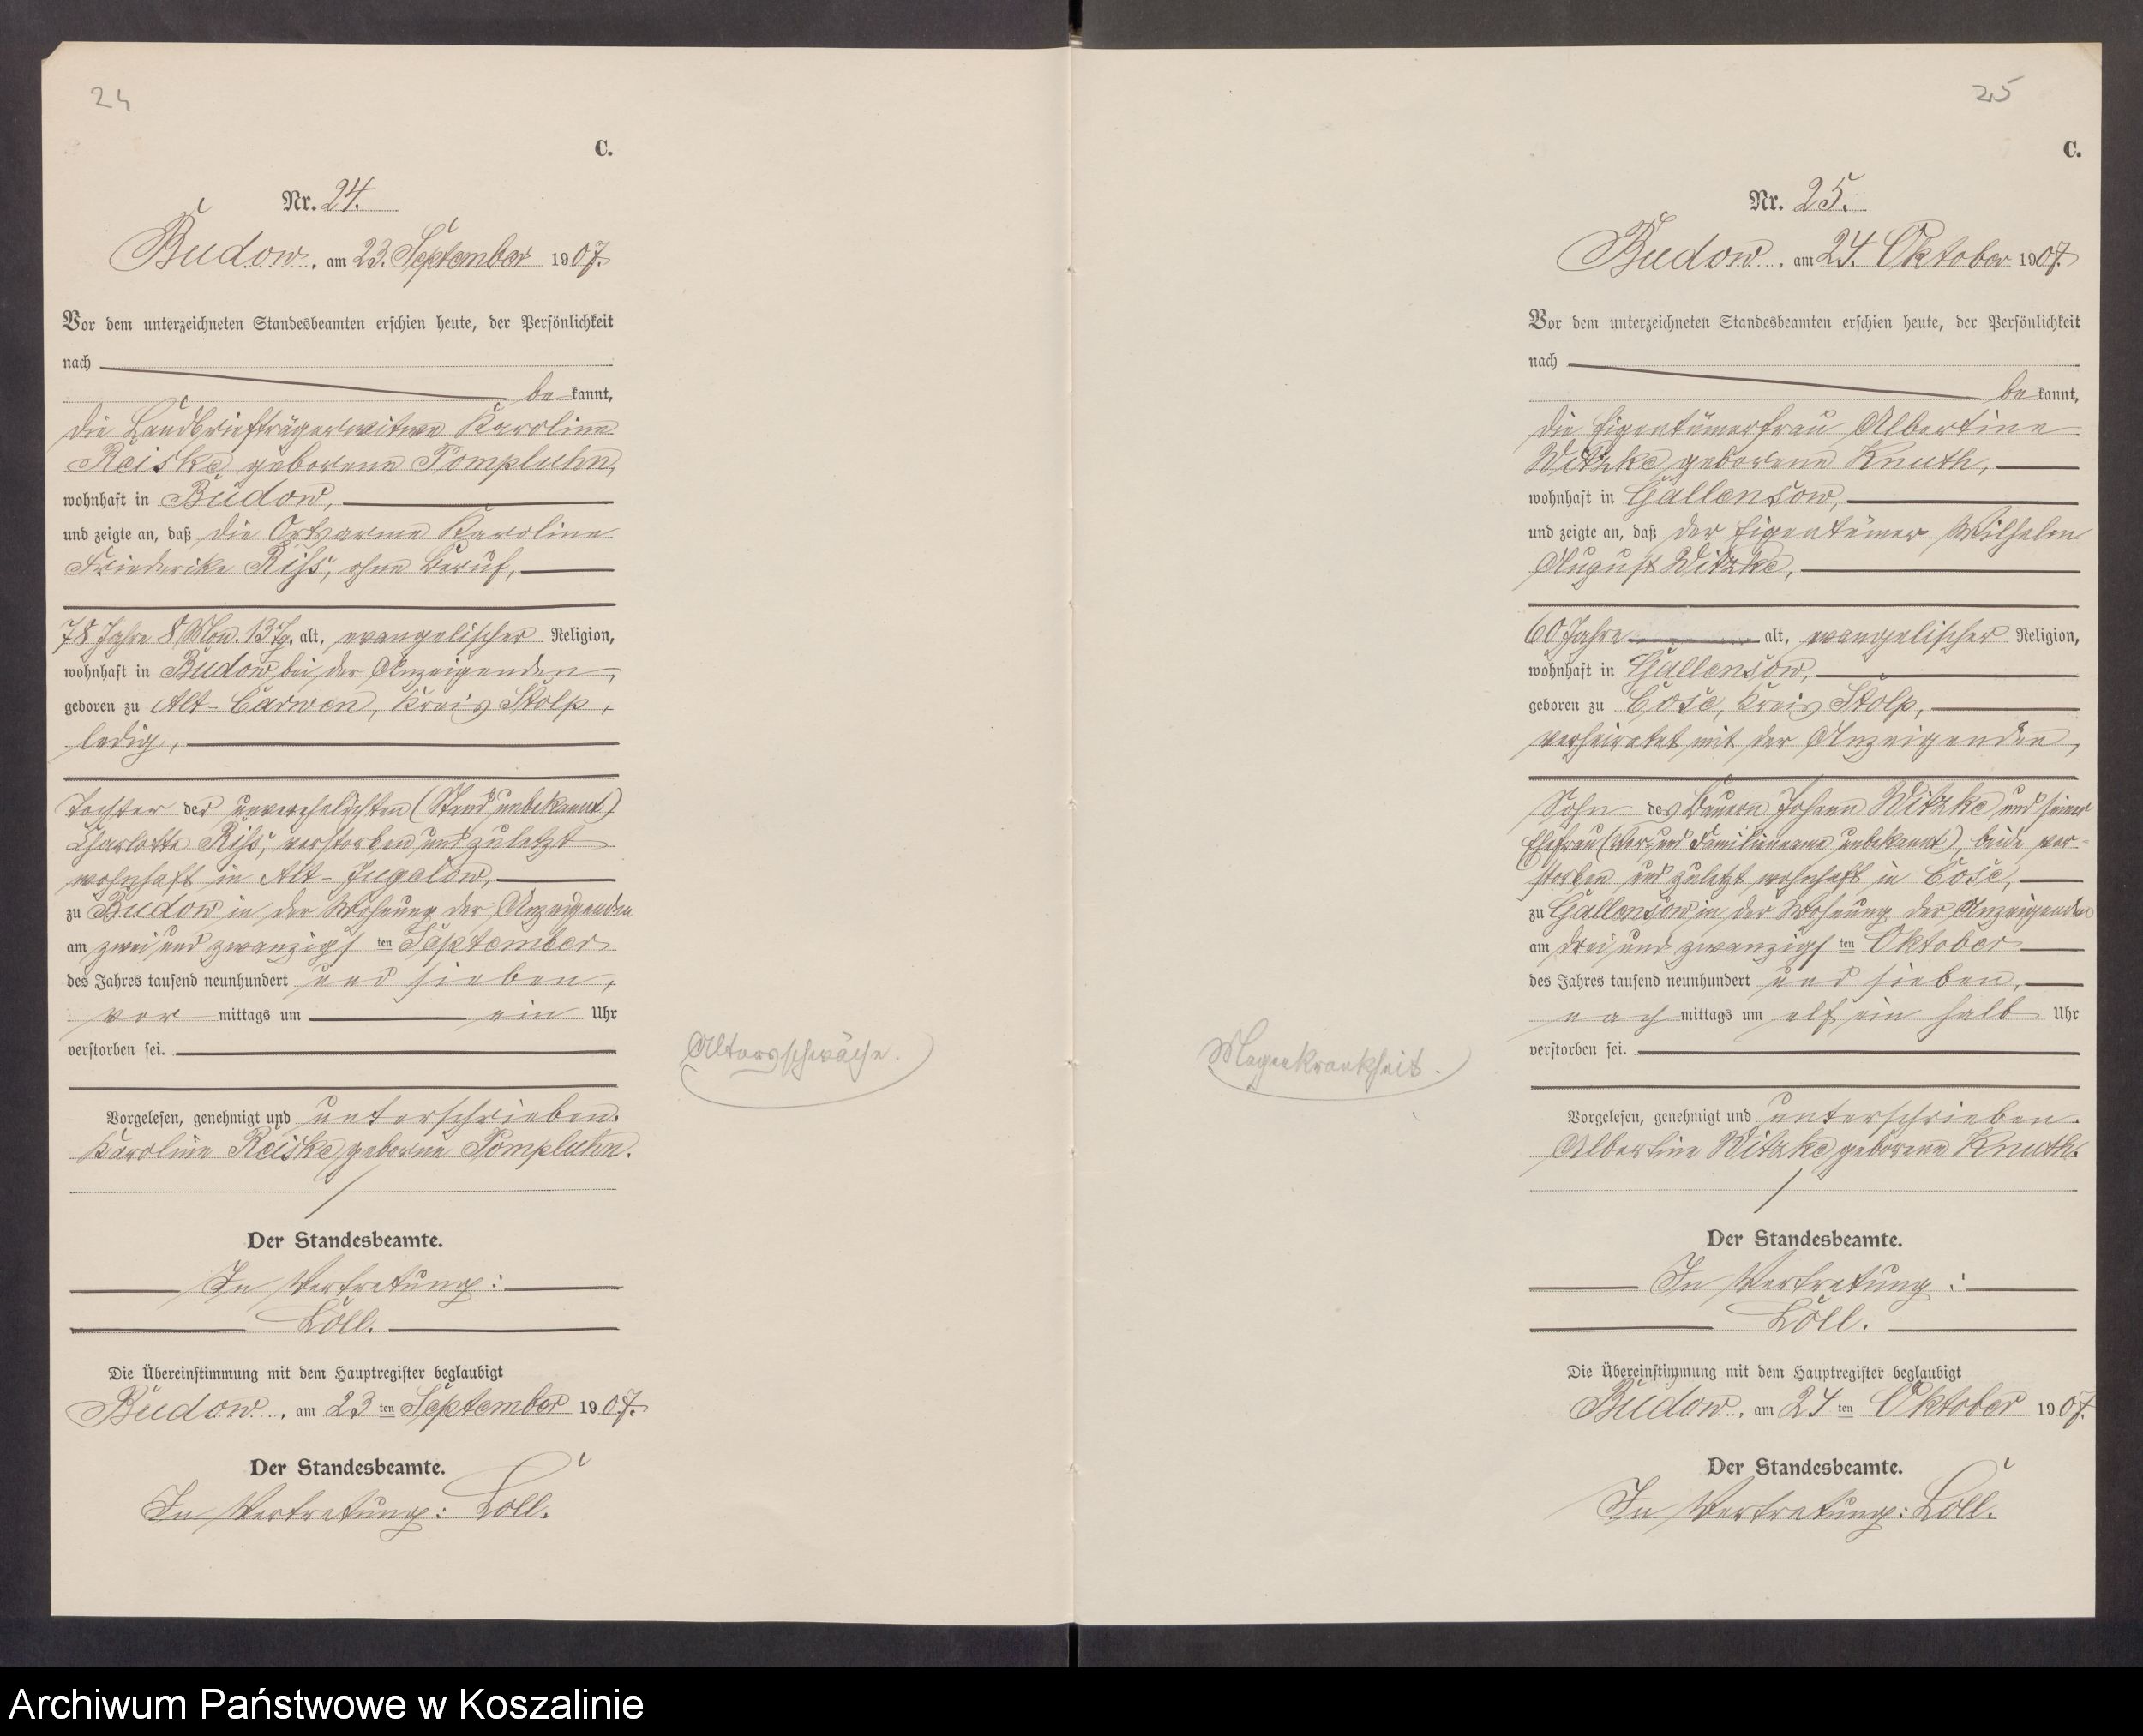 24
C.
Nr. 24.
Budow, am 23. September 1907.
Vor dem unterzeichneten Standesbeamten erschien heute, der Persönlichkeit
nach
be kannt,
die Landbriefträgerwitwe Karoline
Reiske geborene Pompluhn,
wohnhaft in Budow,
und zeigte an, daß die Ortsarme Karoline
Friederike Riss, ohne Beruf,
78 Jahre 8 Mon. 13 Tg. alt, evangelischer Religion,
wohnhaft in Budow bei der Anzeigenden,
geboren zu Alt-Carwen, Kreis Stolp,
ledig,
Tochter der unverehelichten (Stand unbekannt)
Charlotte Riss, verstorben und zuletzt
wohnhaft in Alt-Jugelow,
zu Budow in der Wohnung der Anzeigenden
am zwei und zwanzigs ten September
des Jahres tausend neunhundert und sieben,
vor mittags um ein Uhr
verstorben sei.
Altersschwäche.
Vorgelesen, genehmigt und unterschrieben.
Karoline Reiske geborene Pompluhn.
Der Standesbeamte.
In Vertretung:
Löll.
Die Übereinstimmung mit dem Hauptregister beglaubigt
Budow, am 23 ten September 1907.
Der Standesbeamte.
In Vertretung: Löll.
25
C.
Nr. 25.
Budow, am 24. Oktober 1907.
Vor dem unterzeichneten Standesbeamten erschien heute, der Persönlichkeit
nach
be kannt,
die Eigentümerfrau Albertine
Witzke geborene Knuth,
wohnhaft in Gallensow,
und zeigte an, daß der Eigentümer Wilhelm
August Witzke,
60 Jahre alt, evangelischer Religion,
wohnhaft in Gallensow,
geboren zu Cose, Kreis Stolp,
verheiratet mit der Anzeigenden,
Sohn des Bauern Johann Witzke und seiner
Ehefrau (Vor- und Familienname unbekannt), beide ver-
storben und zuletzt wohnhaft in Cose,
zu Gallensow in der Wohnung der Anzeigenden
am drei und zwanzigs ten Oktober
des Jahres tausend neunhundert und sieben,
nach mittags um elf ein halb Uhr
verstorben sei.
Magenkrankheit.
Vorgelesen, genehmigt und unterschrieben.
Albertine Witzke geborene Knuth.
Der Standesbeamte.
In Vertretung:
Löll.
Die Übereinstimmung mit dem Hauptregister beglaubigt
Budow, am 24 ten Oktober 1907.
Der Standesbeamte.
In Vertretung: Löll.
Archiwum Państwowe w Koszalinie